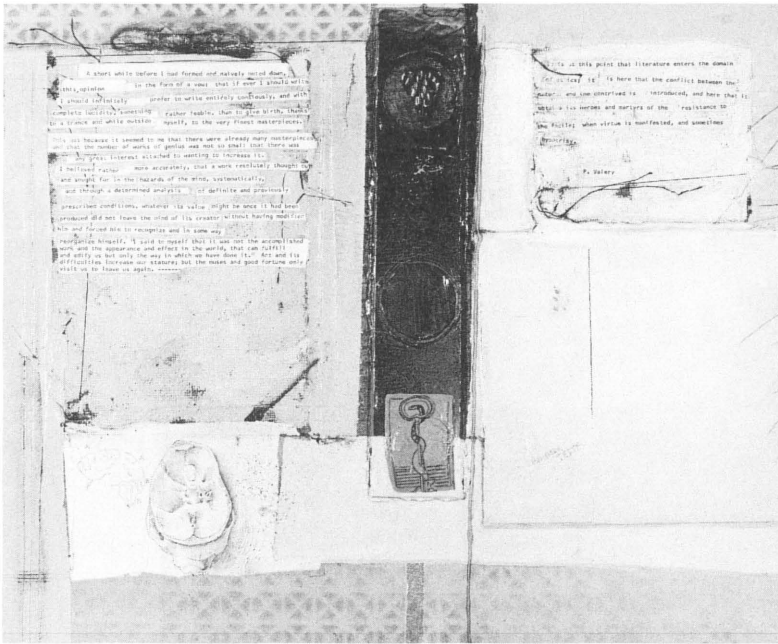 A short while before I had formed and naively noted down,
this opinion in the form of a vow: that if ever I should write
I should infinitely prefer to write entirely consciously, and with
complete lucidity, something rather feeble, than to give birth, thanks
to a trance and while outside myself, to the very finest masterpieces.
This was because it seemed to me that there were already many masterpieces
and that the number of works of genius was not so small that there was
any great interest attached to wanting to increase it.
I believed rather more accurately, that a work resolutely thought out
and sought for in the hazards of the mind, systematically,
and through a determined analysis of definite and previously
prescribed conditions, whatever its value might be once it had been
produced did not leave the mind of its creator without having modified
him and forced him to recognize and in some way
reorganize himself. "I said to myself that it was not the accomplished
work and its appearance and effect in the world, that can fulfill
and edify us but only the way in which we have done it." Art and its
difficulties increase our stature; but the muses and good fortune only
visit us to leave us again. -------
is at this point that literature enters the domain
of ethics; it is here that the conflict between the
natural and the contrived is introduced, and here that it
obtains its heroes and martyrs of the resistance to
the facile; when virtue is manifested, and sometimes
hypocrisy.
P. Valery